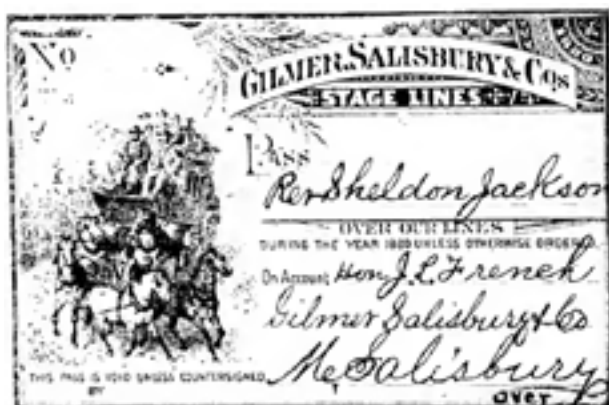 No
GILMER, SALISBURY & COS
STAGE LINES
PASS
Rev Sheldon Jackson
OVER OUR LINES
DURING THE YEAR 1880 UNLESS OTHERWISE ORDERED
On Account Hon J. L. French
Gilmer Salisbury & Co
Salisbury
THIS PASS IS VOID UNLESS COUNTERSIGNED
BY
over